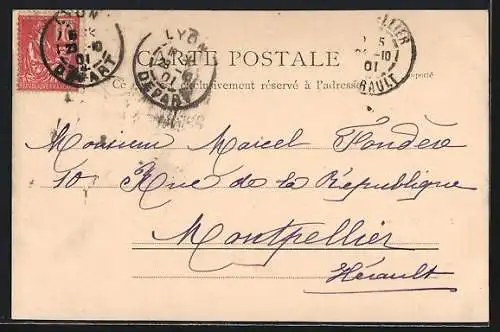 LYON
DEPART
LYON
DEPART
CARTE POSTALE
Ce exclusivement réservé à l'adresse
Monsieur Marcel Fondère
10 Rue de la République
Montpellier
Hérault